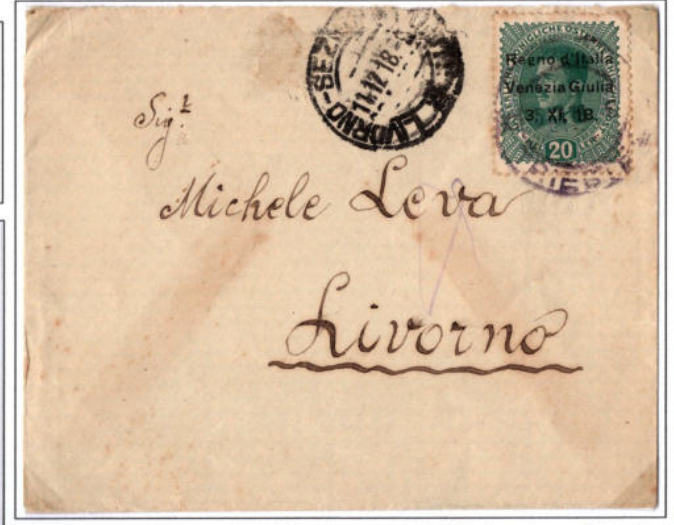 LIVORNO-SEZ
11·12·18
Regno d'Italia
Venezia Giulia
3. XI. 18.
20
Sig.r
Michele Leva
Livorno